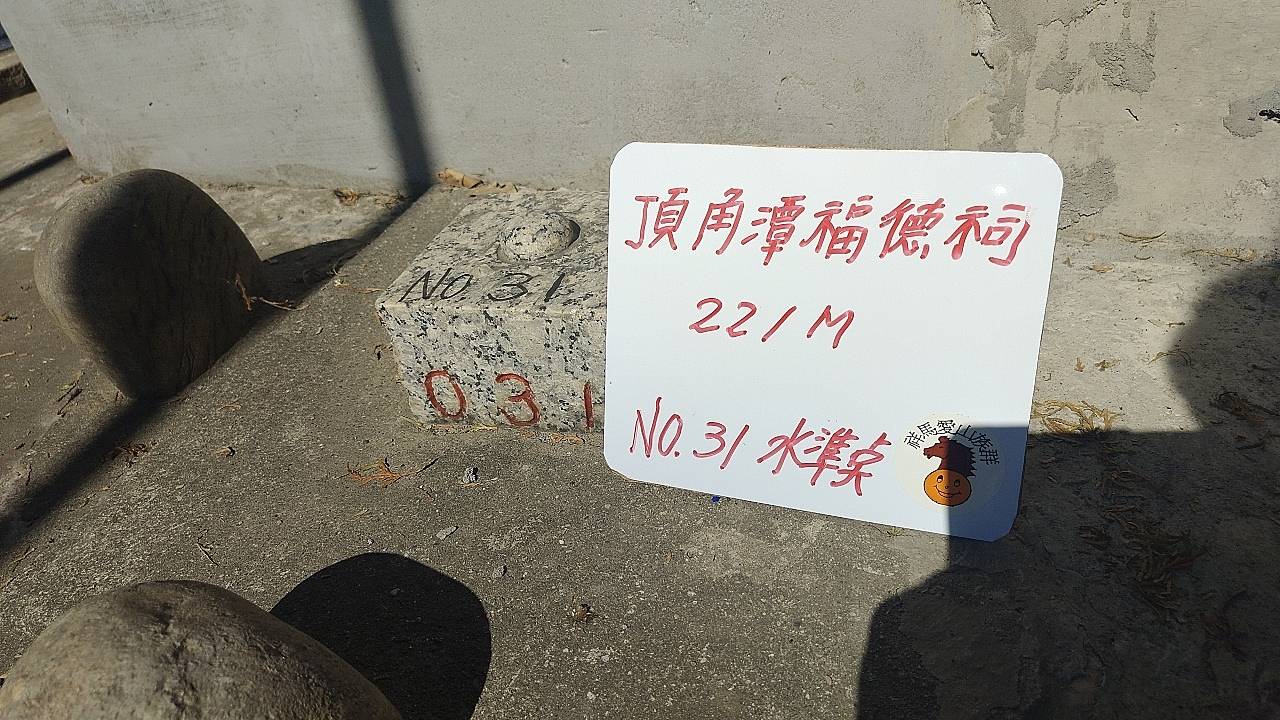 NO 31
031
頂角潭福德祠
221M
NO.31水準点
祥馬愛山族群